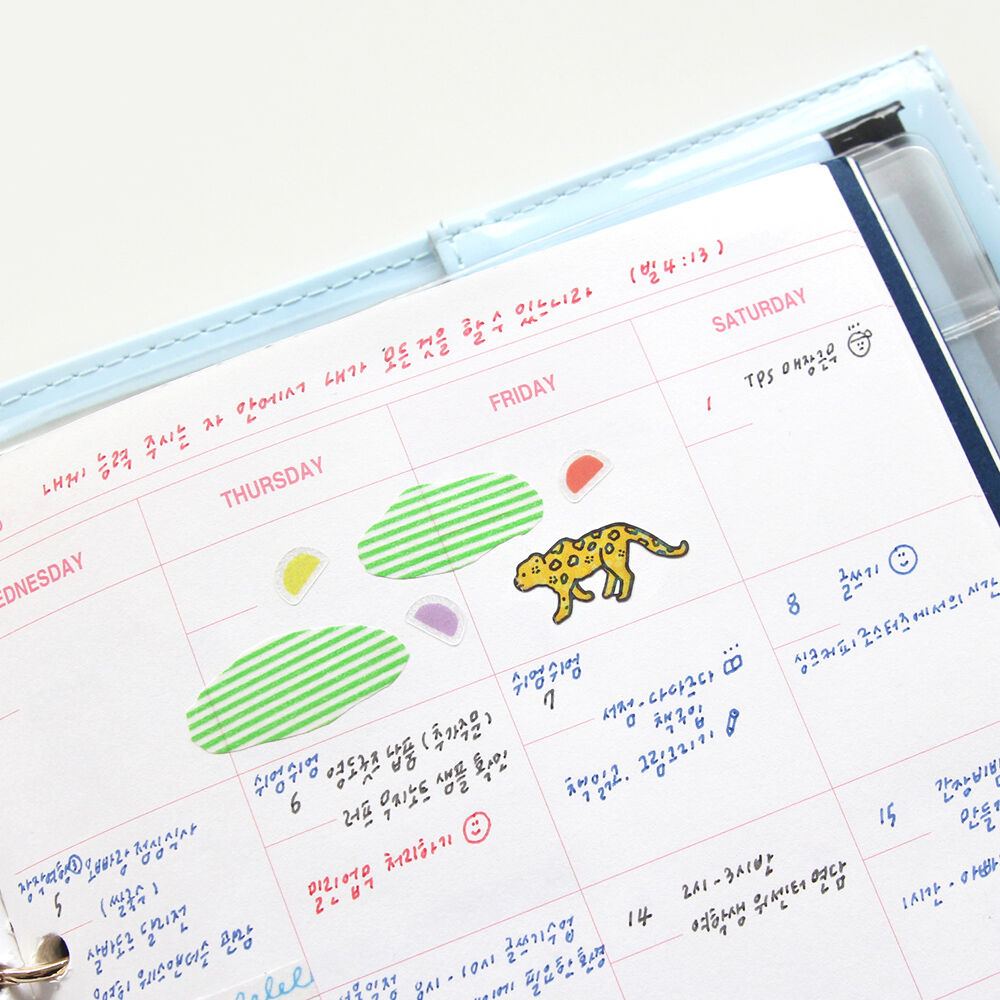 내게 능력 주시는 자 안에서 내가 모든것을 할 수 있느니라 (빌4:13)
WEDNESDAY
THURSDAY
FRIDAY
SATURDAY
1
TPS 애장근무
쉬엄쉬엄
7
서점-다이어리
책구입
책읽고, 그림그리기
8
글쓰기
싱크커피로스터즈에서의 시간
쉬엄쉬엄
6
영도굿즈 납품 (추가주문)
러프 무지노트 샘플 확인
밀린업무 처리하기
5
오빠랑 점심식사
(쌀국수)
살바도르 달리전
14
2시-3시반
여학생 위센터 면담
15
간장비빔
만들
1시간-아빠
10시 글쓰기수업
필요한 환경